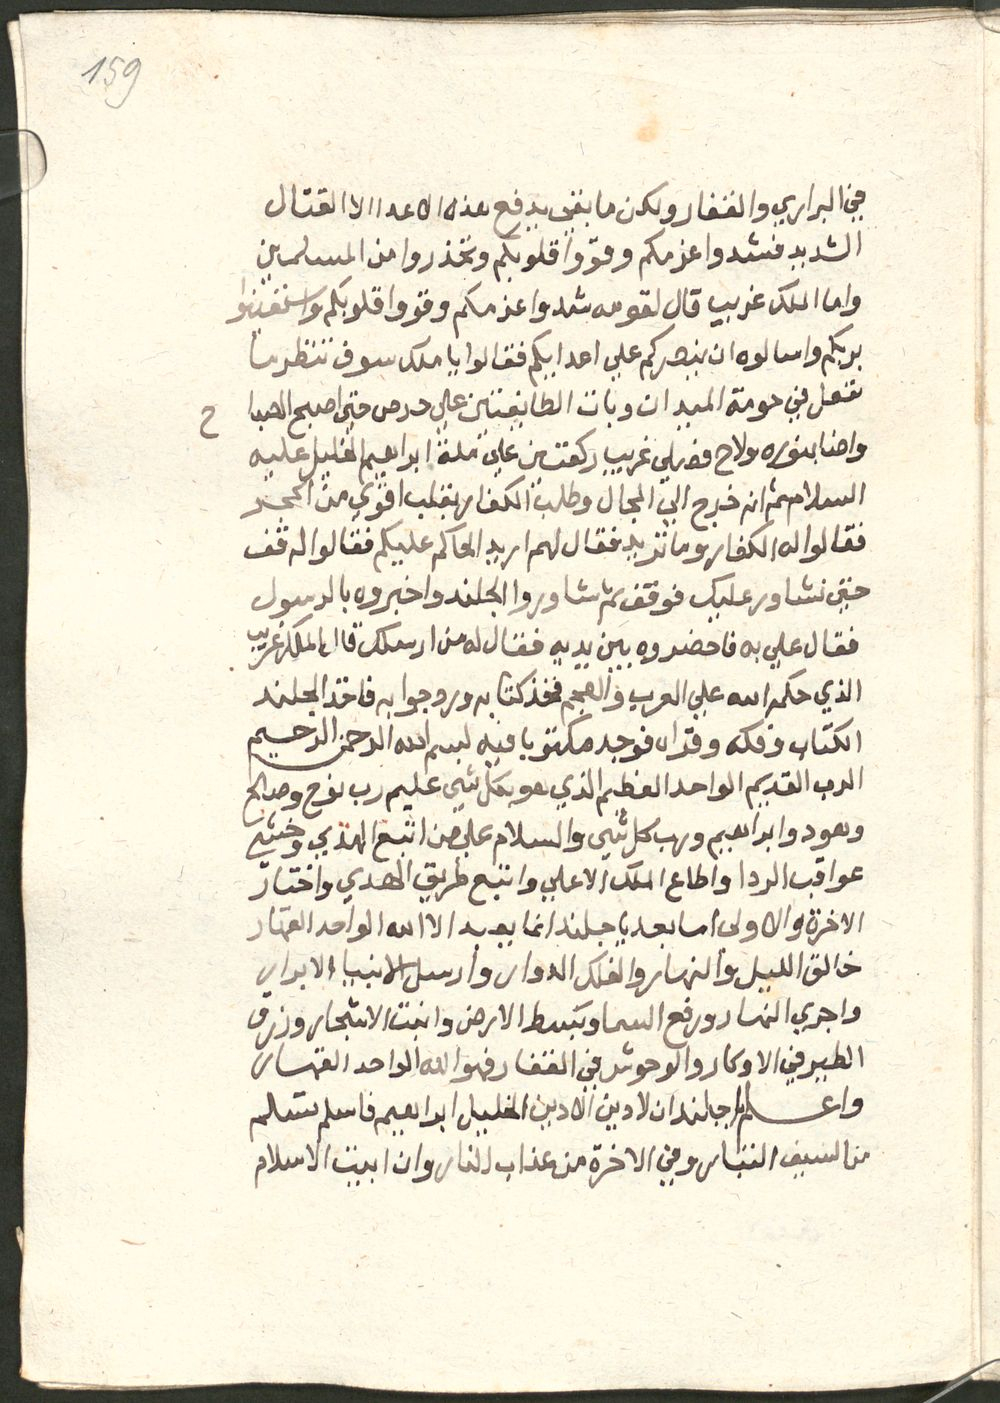 159
في البراري والقفار ولكن ما بقي يدفع هذه الاعدا الا القتال
الشديد فشدوا عزمكم وقووا قلوبكم وتحذروا من المسلمين
واما الملك غريب قال لقومه شدوا عزمكم وقووا قلوبكم واستغيثوا
بربكم واسالوه ان ينصركم علي اعدايكم فقالوا يا ملك سوف تنظر ما
نفعل في حومة الميدان وبات الطايفتين علي حرص حتي اصبح الصبا
ح
واضا بنوره ولاح فصلي غريب ركعتين علي ملة ابراهيم الخليل عليه
السلام ثم انه خرج الي المجال وطلب الكفار بقلب اقوي من الحجر
فقالوا له الكفار وما تريد فقال لهم اريد الحاكم عليكم فقالوا له قف
حتي نشاور عليك فوقف ثم شاوروا الجلند واخبروه بالرسول
فقال علي به فاحضروه بين يديه فقال له من ارسلك قال الملك غريب
الذي حكمه الله علي العرب والعجم فخذ كتابه وردوا جوابه فاخذ الجلند
الكتاب وفكه وقراه فوجد مكتوبا فيه بسم الله الرحمن الرحيم
الرب القديم الواحد العظيم الذي هو بكل شي عليم رب نوح وصالح
وهود وابراهيم ورب كل شي والسلام علي من اتبع الهدي وخشي
عواقب الردا واطاع الملك الاعلي واتبع طريق الهدي واختار
الاخرة والاولى اما بعد يا جلند انما يعبد الا الله الواحد القهار
خالق الليل والنهار والفلك الدوار وأرسل الانبيا الابرار
واجري النهار ورفع السما وبسط الارض وانبت الاشجار ورزق
الطير في الاوكار والوحوش في القفار فهو الله الواحد القهار
واعلم يا جلند ان لا دين الا دين الخليل ابراهيم فاسلم تسلم
من السيف البتار وفي الاخرة من عذاب النار وان ابيت الاسلام